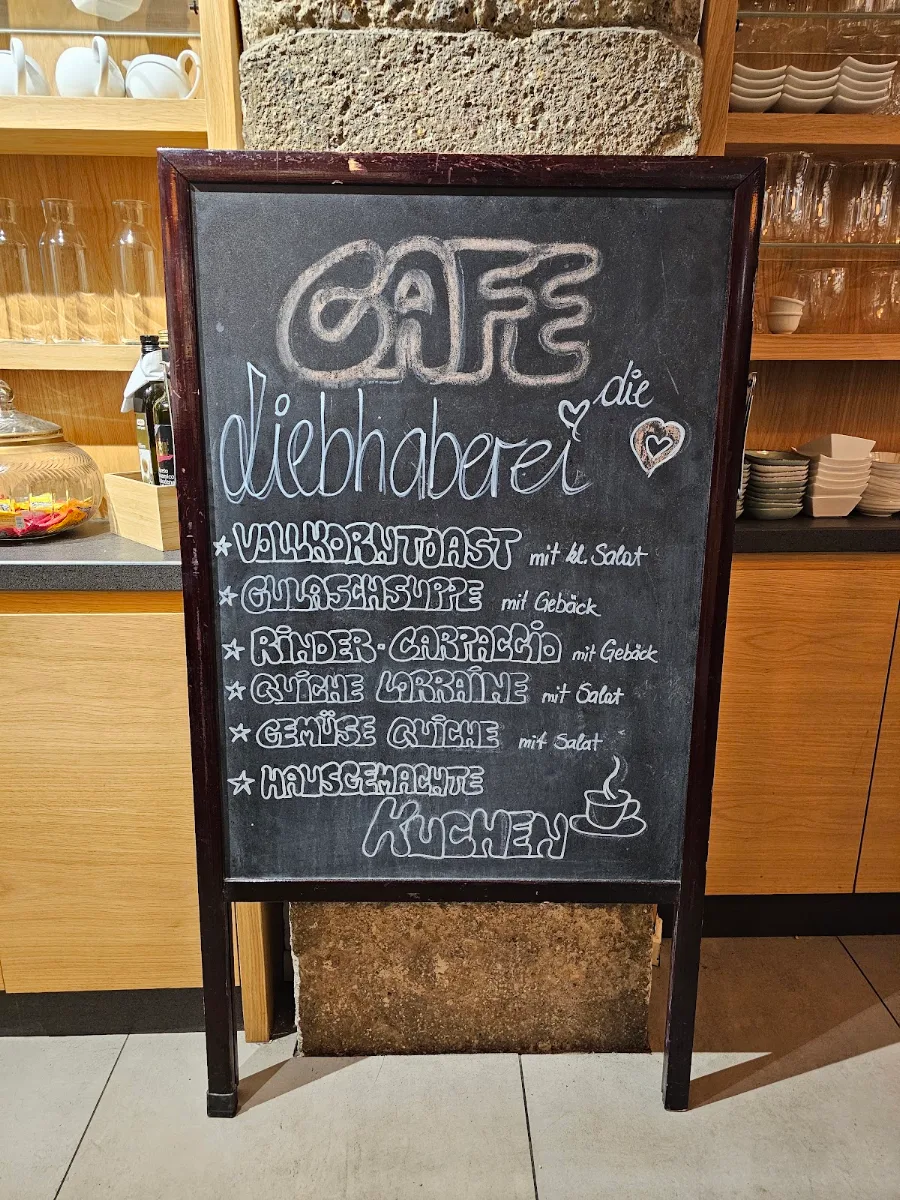 CAFE
die
diebhaberei
VOLLKORNTOAST mit kl. Salat
GULASCHSUPPE mit Gebäck
RINDER-CARPACCIO mit Gebäck
QUICHE LORRAINE mit Salat
GEMÜSE QUICHE mit Salat
HAUSGEMACHTE
KUCHEN